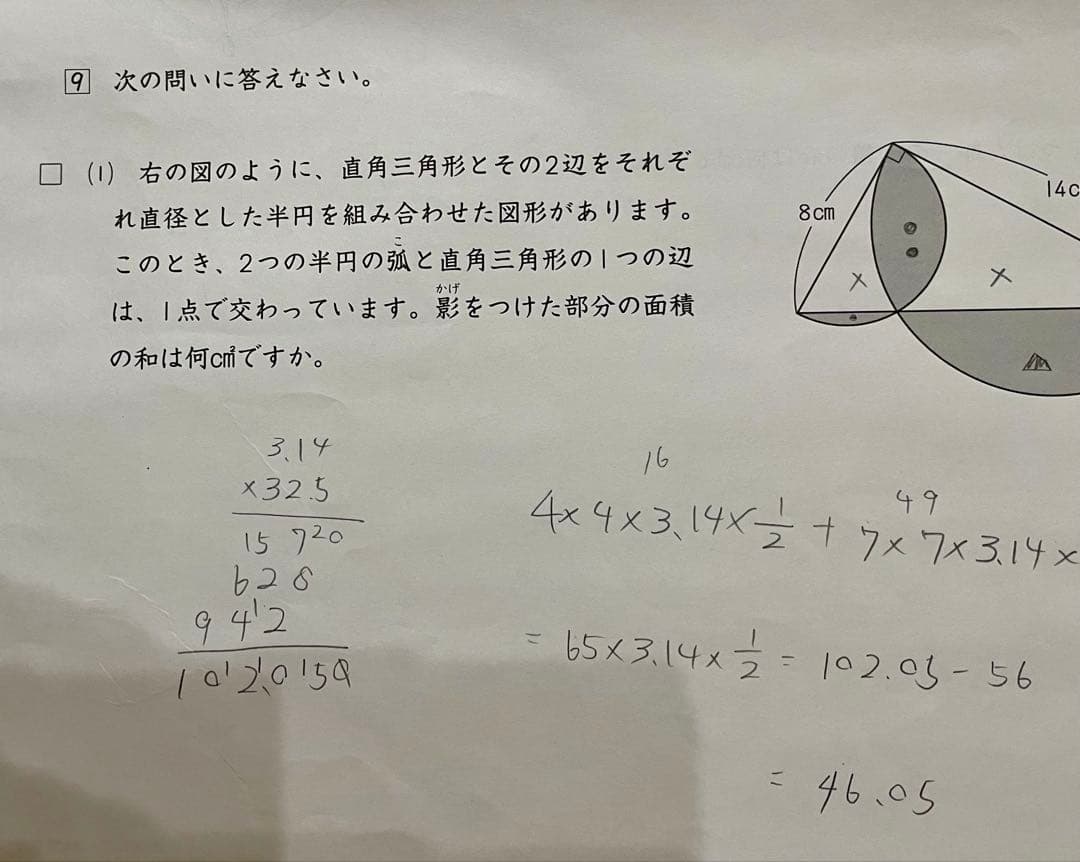 9 次の問いに答えなさい。
(1) 右の図のように、直角三角形とその2辺をそれぞ
れ直径とした半円を組み合わせた図形があります。
このとき、2つの半円の弧と直角三角形の1つの辺
こ
は、1点で交わっています。影をつけた部分の面積
かげ
の和は何cm²ですか。
8cm
14c
3.14
×32.5
15 720
628
9 412
102.0150
16
49
4×4×3.14×1/2 + 7×7×3.14×
= 65×3.14×1/2 = 102.05 - 56
= 46.05